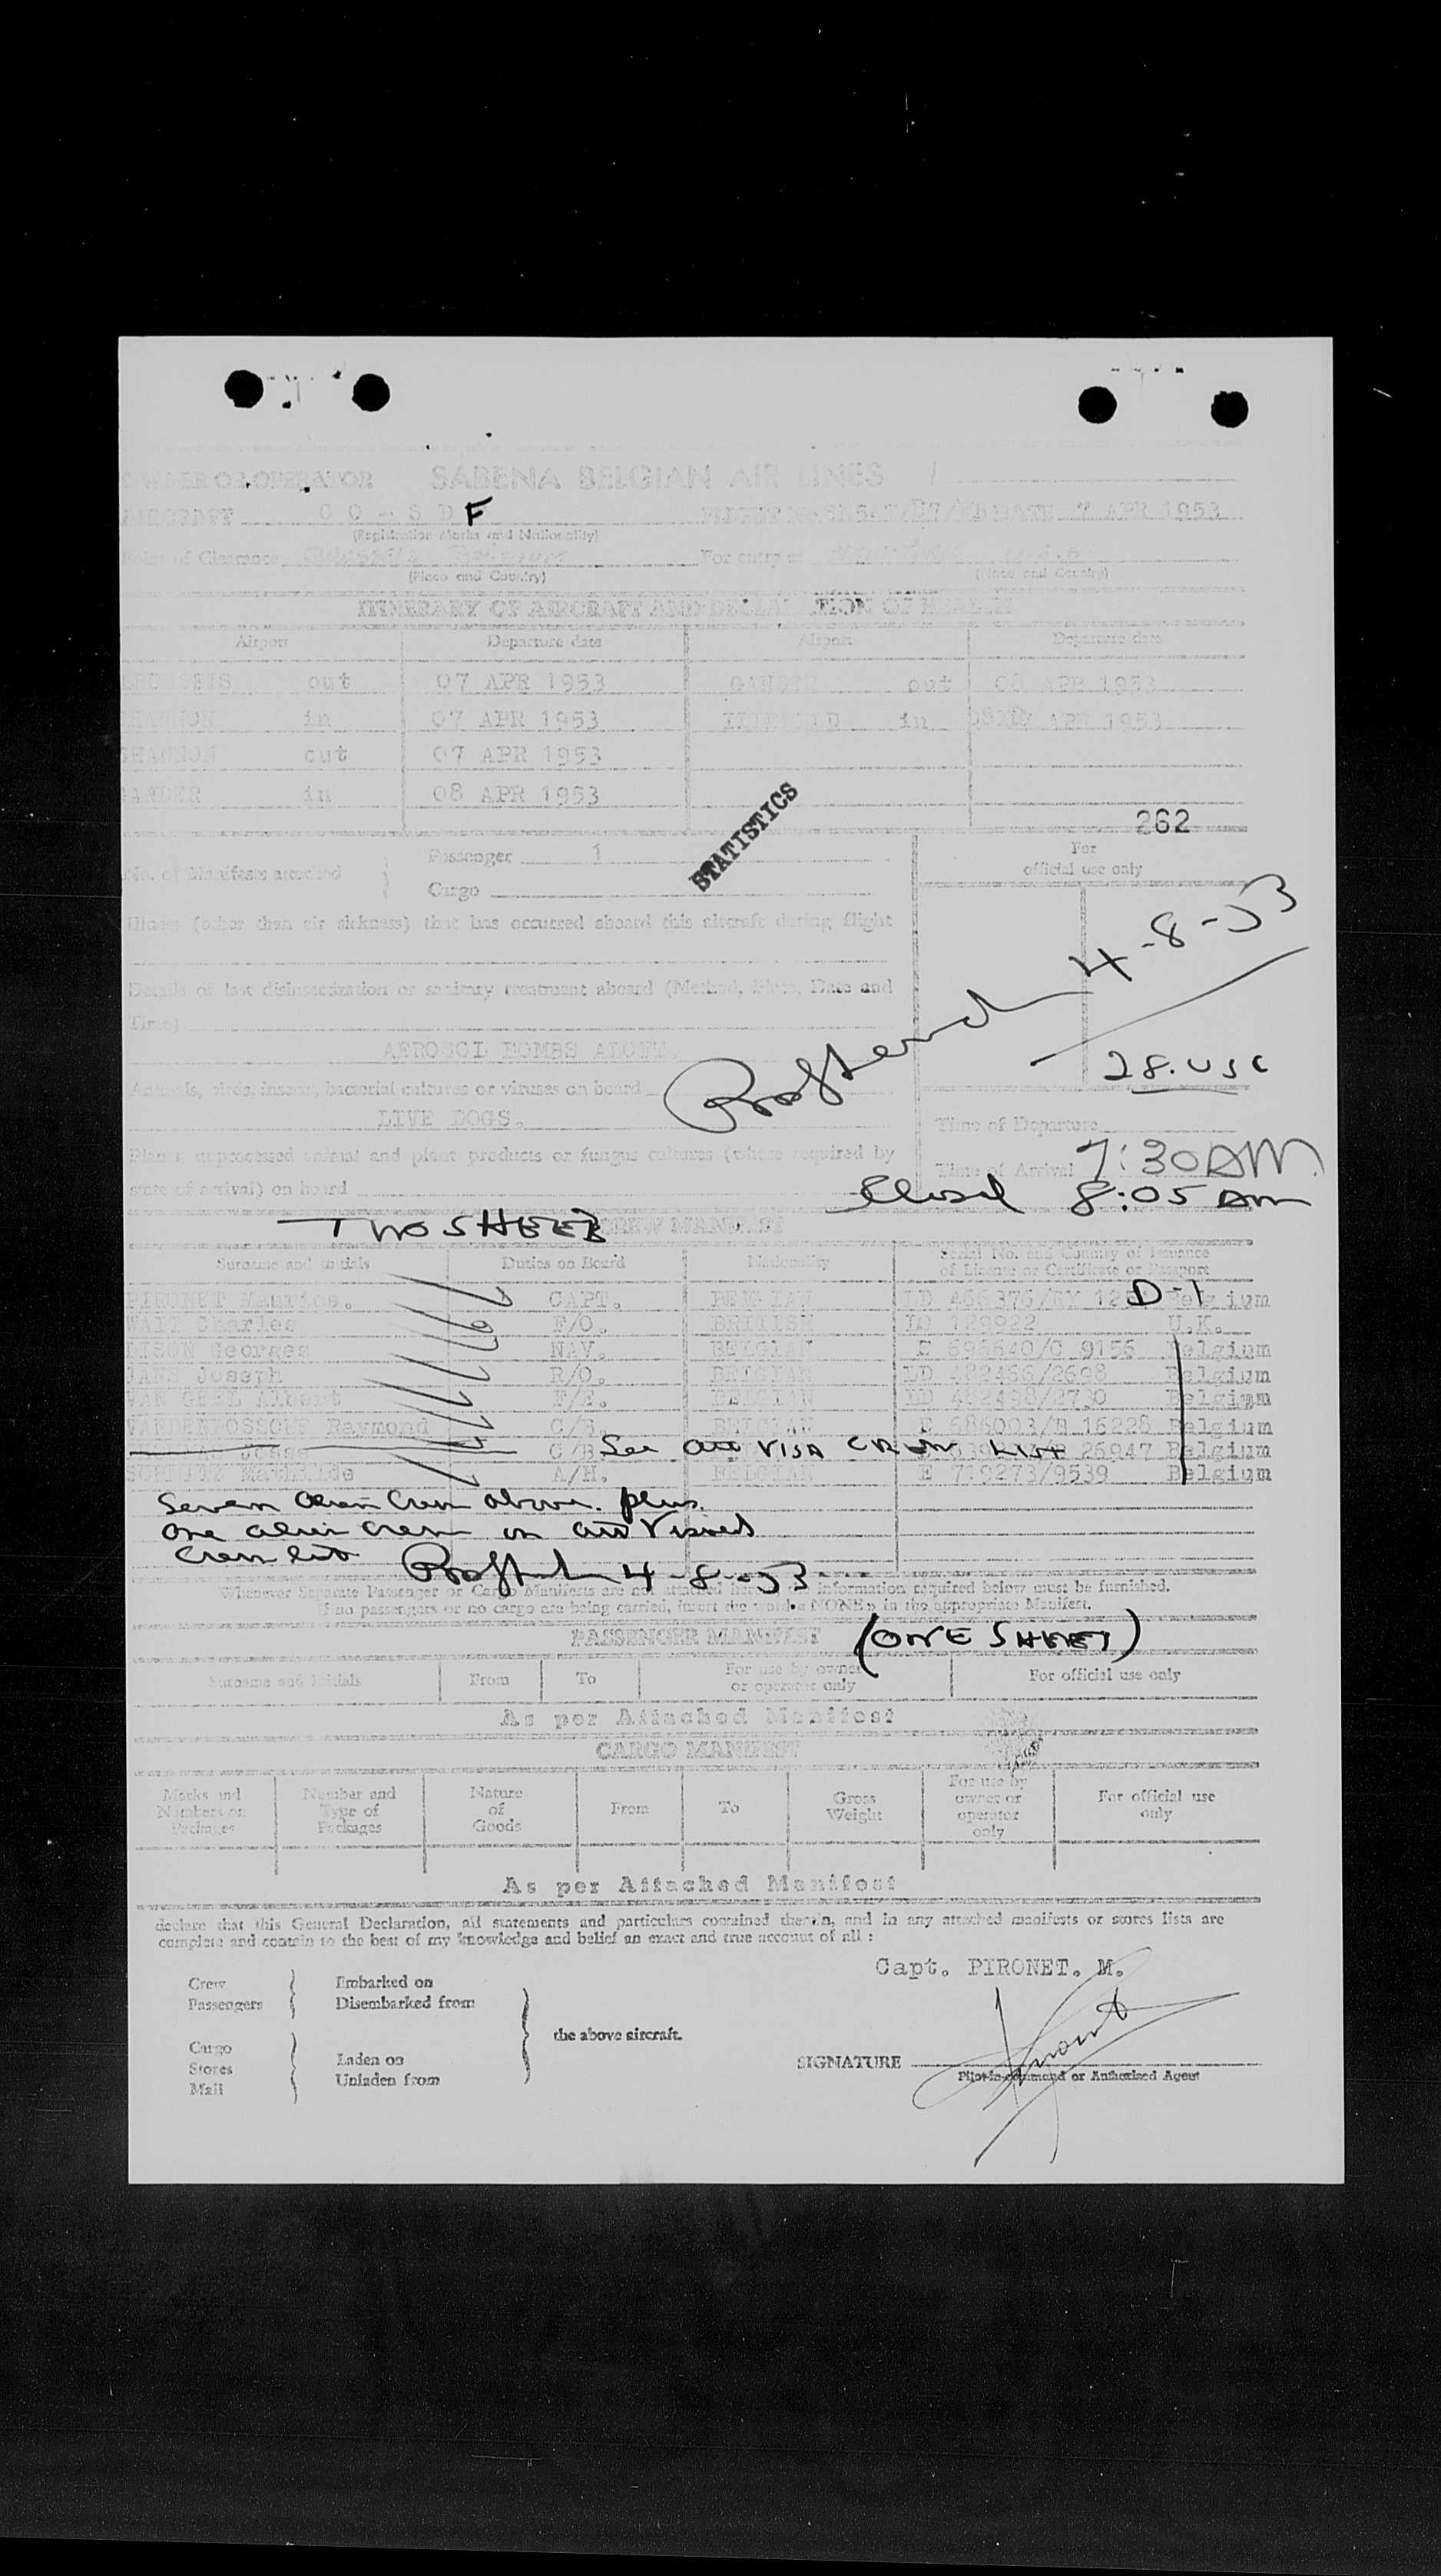 OWNER OR OPERATOR SABENA BELGIAN AIR LINES
AIRCRAFT OO - SD F DATE 7 APR 1953
(Registration Marks and Nationality)
of Clearance For entry at
(Place and Country) (Place and Country)
ITINERARY OF AIRCRAFT AND DECLARATION OF HEALTH
Airport Departure date Airport Departure date
BRUSSELS out 07 APR 1953 GANDER out 08 APR 1953
SHANNON in 07 APR 1953 IDLEWILD in APR 1953
SHANNON out 07 APR 1953
GANDER in 08 APR 1953
STATISTICS
262
Passenger 1
No. of Manifests attached
Cargo
For
official use only
Illness (other than air sickness) that has occurred aboard this aircraft during flight
4-8-53
Details of last disinsectization or sanitary treatment aboard (Method, Place, Date and
Time)
AEROSOL BOMBS ALOFT.
28. USC
Animals, birds, insects, bacterial cultures or viruses on board
LIVE DOGS.
Time of Departure
Plants, unprocessed animal and plant products or fungus cultures (where required by
state of arrival) on board
Time of Arrival 7:30 AM
Closed 8:05 AM
TWO SHEETS CREW MANIFEST
Surname and initials Duties on Board Nationality Serial No. and Country of Issuance
of License or Certificate or Passport
PIRONET Maurice. CAPT. BELGIAN LD 466376/ D-1 Belgium
WAIT Charles F/O. BRITISH LO 129922 U.K.
Georges NAV. BELGIAN E 696640/C 9156 Belgium
JANS Joseph R/O. BELGIAN LD 482466/2698 Belgium
VAN GEEL Albert F/E. BELGIAN LD 482498/2730 Belgium
Raymond BELGIAN E 686003/B 16228 Belgium
See att VISA CREW LIST 26947 Belgium
Mathilde A/H. BELGIAN E 719273/9539 Belgium
Seven alien crew above. plus
one alien crew on att Visaed
crew list 4-8-53
Whenever Separate Passenger or Cargo Manifests are not attached information required below must be furnished.
If no passengers or no cargo are being carried, insert the word « NONE » in the appropriate Manifest.
PASSENGER MANIFEST (ONE SHEET)
Surname and Initials From To For use by owner
or operator only For official use only
As per Attached Manifest
CARGO MANIFEST
Marks and
Numbers on
Packages Number and
Type of
Packages Nature
of
Goods From To Gross
Weight For use by
owner or
operator
only For official use
only
As per Attached Manifest
declare that this General Declaration, all statements and particulars contained therein, and in any attached manifests or stores lists are
complete and contain to the best of my knowledge and belief an exact and true account of all :
Capt. PIRONET. M.
Crew Embarked on
Passengers Disembarked from
the above aircraft.
Cargo
Stores Laden on
Mail Unladen from
SIGNATURE
Pilot-in-command or Authorized Agent